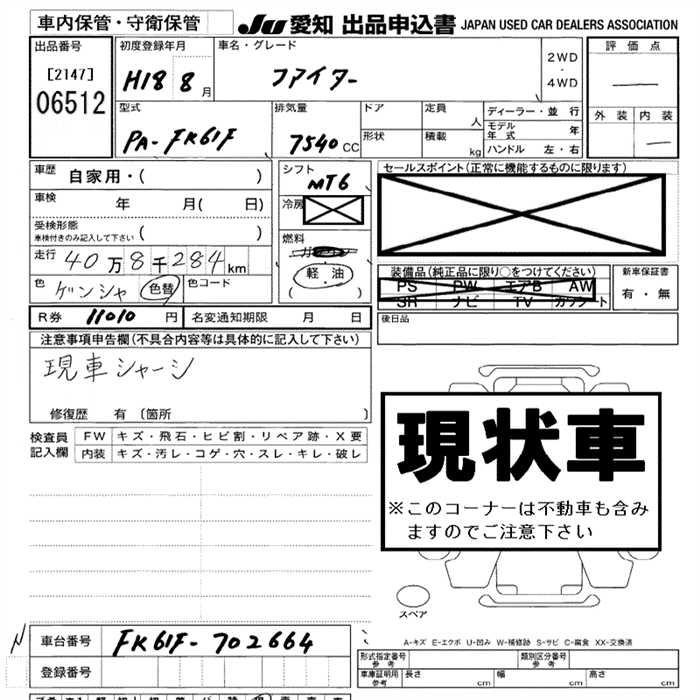 車内保管・守衛保管
JU 愛知 出品申込書 JAPAN USED CAR DEALERS ASSOCIATION
出品番号
[2147]
06512
初度登録年月
H18 8月
車名・グレード
ファイター
2WD
・
4WD
評価点
外装 内装
型式
PA-FK61F
排気量
7540 CC
ドア
形状
定員
人
積載
kg
ディーラー・並 行
モデル年式 年
ハンドル 左・右
車歴 自家用・( )
車検 年 月( 日)
受検形態
車検付きのみ記入して下さい ( )
走行 40万8千284km
色 ゲンシャ 色替 色コード
シフト
MT6
冷房
燃料
軽・油
( )
セールスポイント(正常に機能するものに限ります)
装備品(純正品に限り○をつけてください)
PS PW エアB AW
SR ナビ TV カワシート
新車保証書
有・無
R券 11010 円 名変通知期限 月 日
後日品
注意事項申告欄(不具合内容等は具体的に記入して下さい)
現車シャーシ
修復歴 有 〔箇所 〕
検査員
記入欄
FW キズ・飛石・ヒビ割・リペア跡・X要
内装 キズ・汚レ・コゲ・穴・スレ・キレ・破レ
現状車
※このコーナーは不動車も含み
ますのでご注意下さい
スペア
A-キズ E-エクボ U-凹み W-補修跡 S-サビ C-腐食 XX-交換済
N
車台番号 FK61F-702664
登録番号
形式指定番号
参考
類別区分番号
参考
車庫証明用
参考
長さ cm 幅 cm 高さ cm